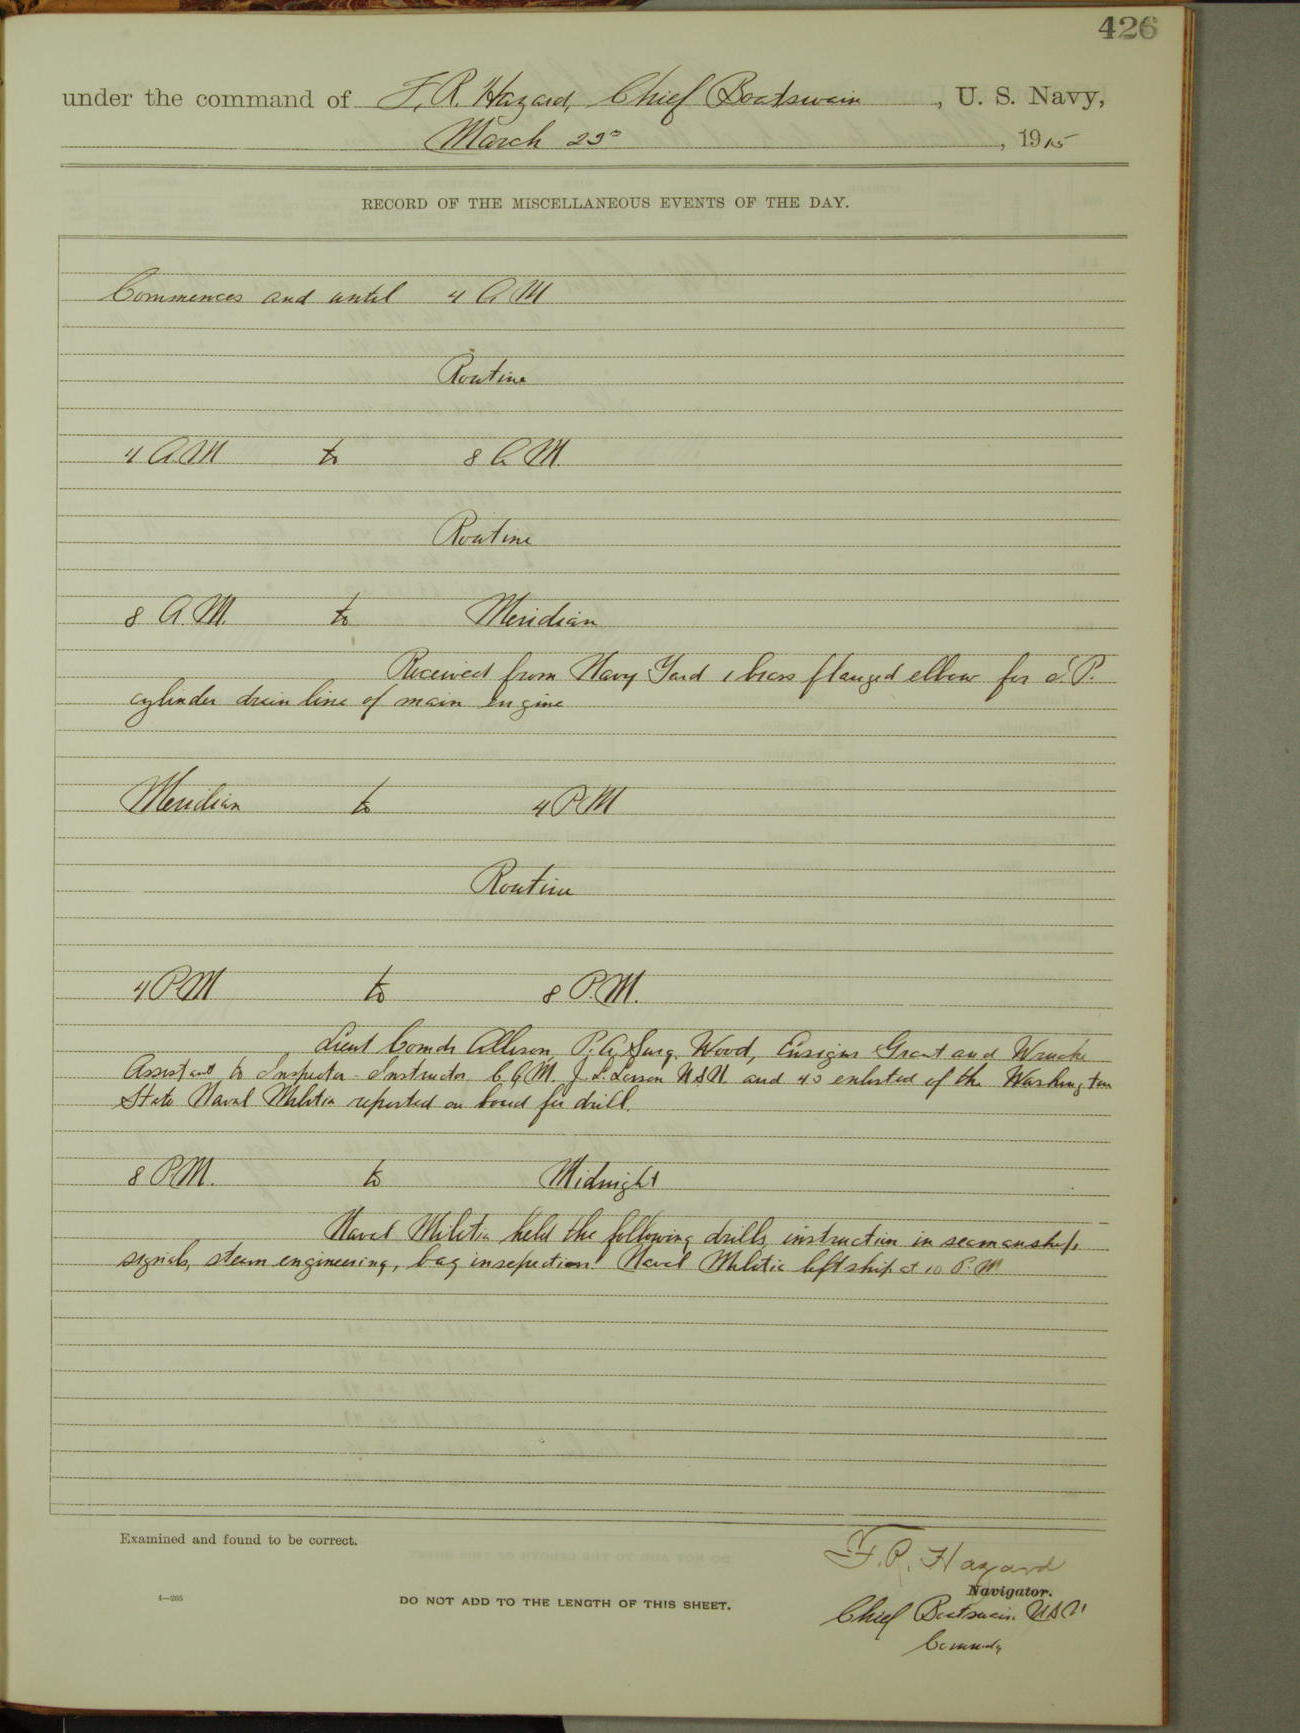 426
under the command of F. R. Hazard, Chief Boatswain, U. S. Navy,
March 23d, 1915
RECORD OF THE MISCELLANEOUS EVENTS OF THE DAY.
Commences and until 4 A M
Routine
4 A.M to 8 A.M.
Routine
8 A.M. to Meridian
Received from Navy Yard 1 brass flanged elbow for P.
cylinder drain line of main engine
Meridian to 4 P.M
Routine
4 P.M to 8 P.M.
Lieut Comdr Allison, P. A. Surg. Wood, Ensigns Grant and
Assistant to Inspector-Instructor C.G.M. J. L. Larson USN and enlisted of the Washington
State Naval Militia reported on board for drill.
8 P.M. to Midnight
Naval Militia held the following drills, instruction in seamanship,
signals, steam engineering, bag insepection. Naval Militia left ship at 10 P.M
Examined and found to be correct.
F. R. Hazard
Navigator.
4—265
DO NOT ADD TO THE LENGTH OF THIS SHEET.
Chief Boatswain USN